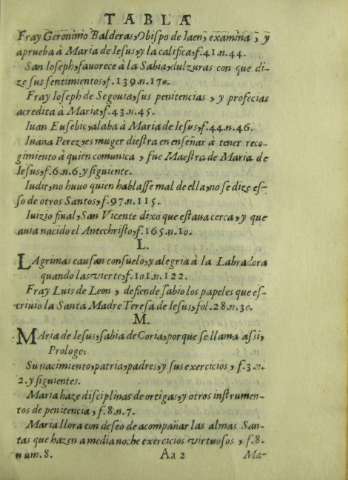 TABLA
Fray Geronimo Balderas, Obispo de Iaen, examina, y
aprueba à Maria de Iesus, y la califica, f.41.n.44.
San Ioseph, favorece à la Sabia, dulzuras con que di-
ze sus sentimientos, f.139.n.170.
Fray Ioseph de Segouia, sus penitencias, y profecias
acredita à Maria, f.43.n.45.
Iuan Eusebio, alaba à Maria de Iesus, f.44.n.46.
Iuana Perez, es muger diestra en enseñar à tener reco-
gimiento à quien comunica, y fue Maestra de Maria de
Iesus, f.6.n.6. y siguiente.
Iudit, no huuo quien hablasse mal de ella, no se dize es-
so de otros Santos, f.97.n.115.
Iuizio final, San Vicente dixo que estaua cerca, y que
auia nacido el Antechristo, f.165.n.10.
L.
LAgrimas causan consuelo, y alegria à la Labradora
quando las vierte, f.101.n.122.
Fray Luis de Leon, defiende sabio los papeles que es-
criuio la Santa Madre Teresa de Iesus, fol.28.n.30.
M.
MAria de Iesus, sabia de Coria, porque se llama assi,
Prologo.
Su nacimiento, patria, padres, y sus exercicios, f.3.n.
2. y siguientes.
Maria haze disciplinas de ortigas, y otros instrumen-
tos de penitencia, f.8.n.7.
Maria llora con deseo de acompañar las almas San-
tas que hazen a media noche exercicios virtuosos, f.8.
num.8. Aa 2 Ma-